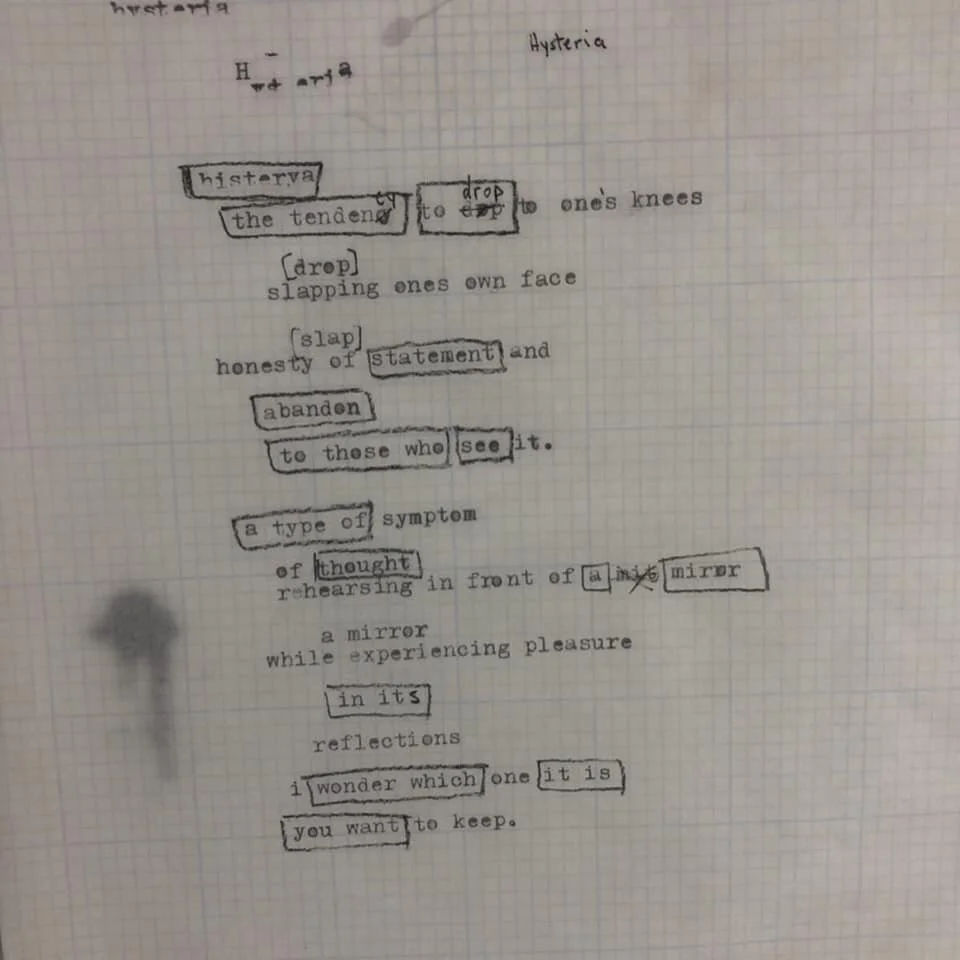 hysteria
Hysteria
H
histerya
the tendency to drop to one's knees
[drop]
slapping ones own face
[slap]
honesty of statement and
abandon
to those who see it.
a type of symptom
of thought
rehearsing in front of a mit mirror
a mirror
while experiencing pleasure
in its
reflections
i wonder which one it is
you want to keep.